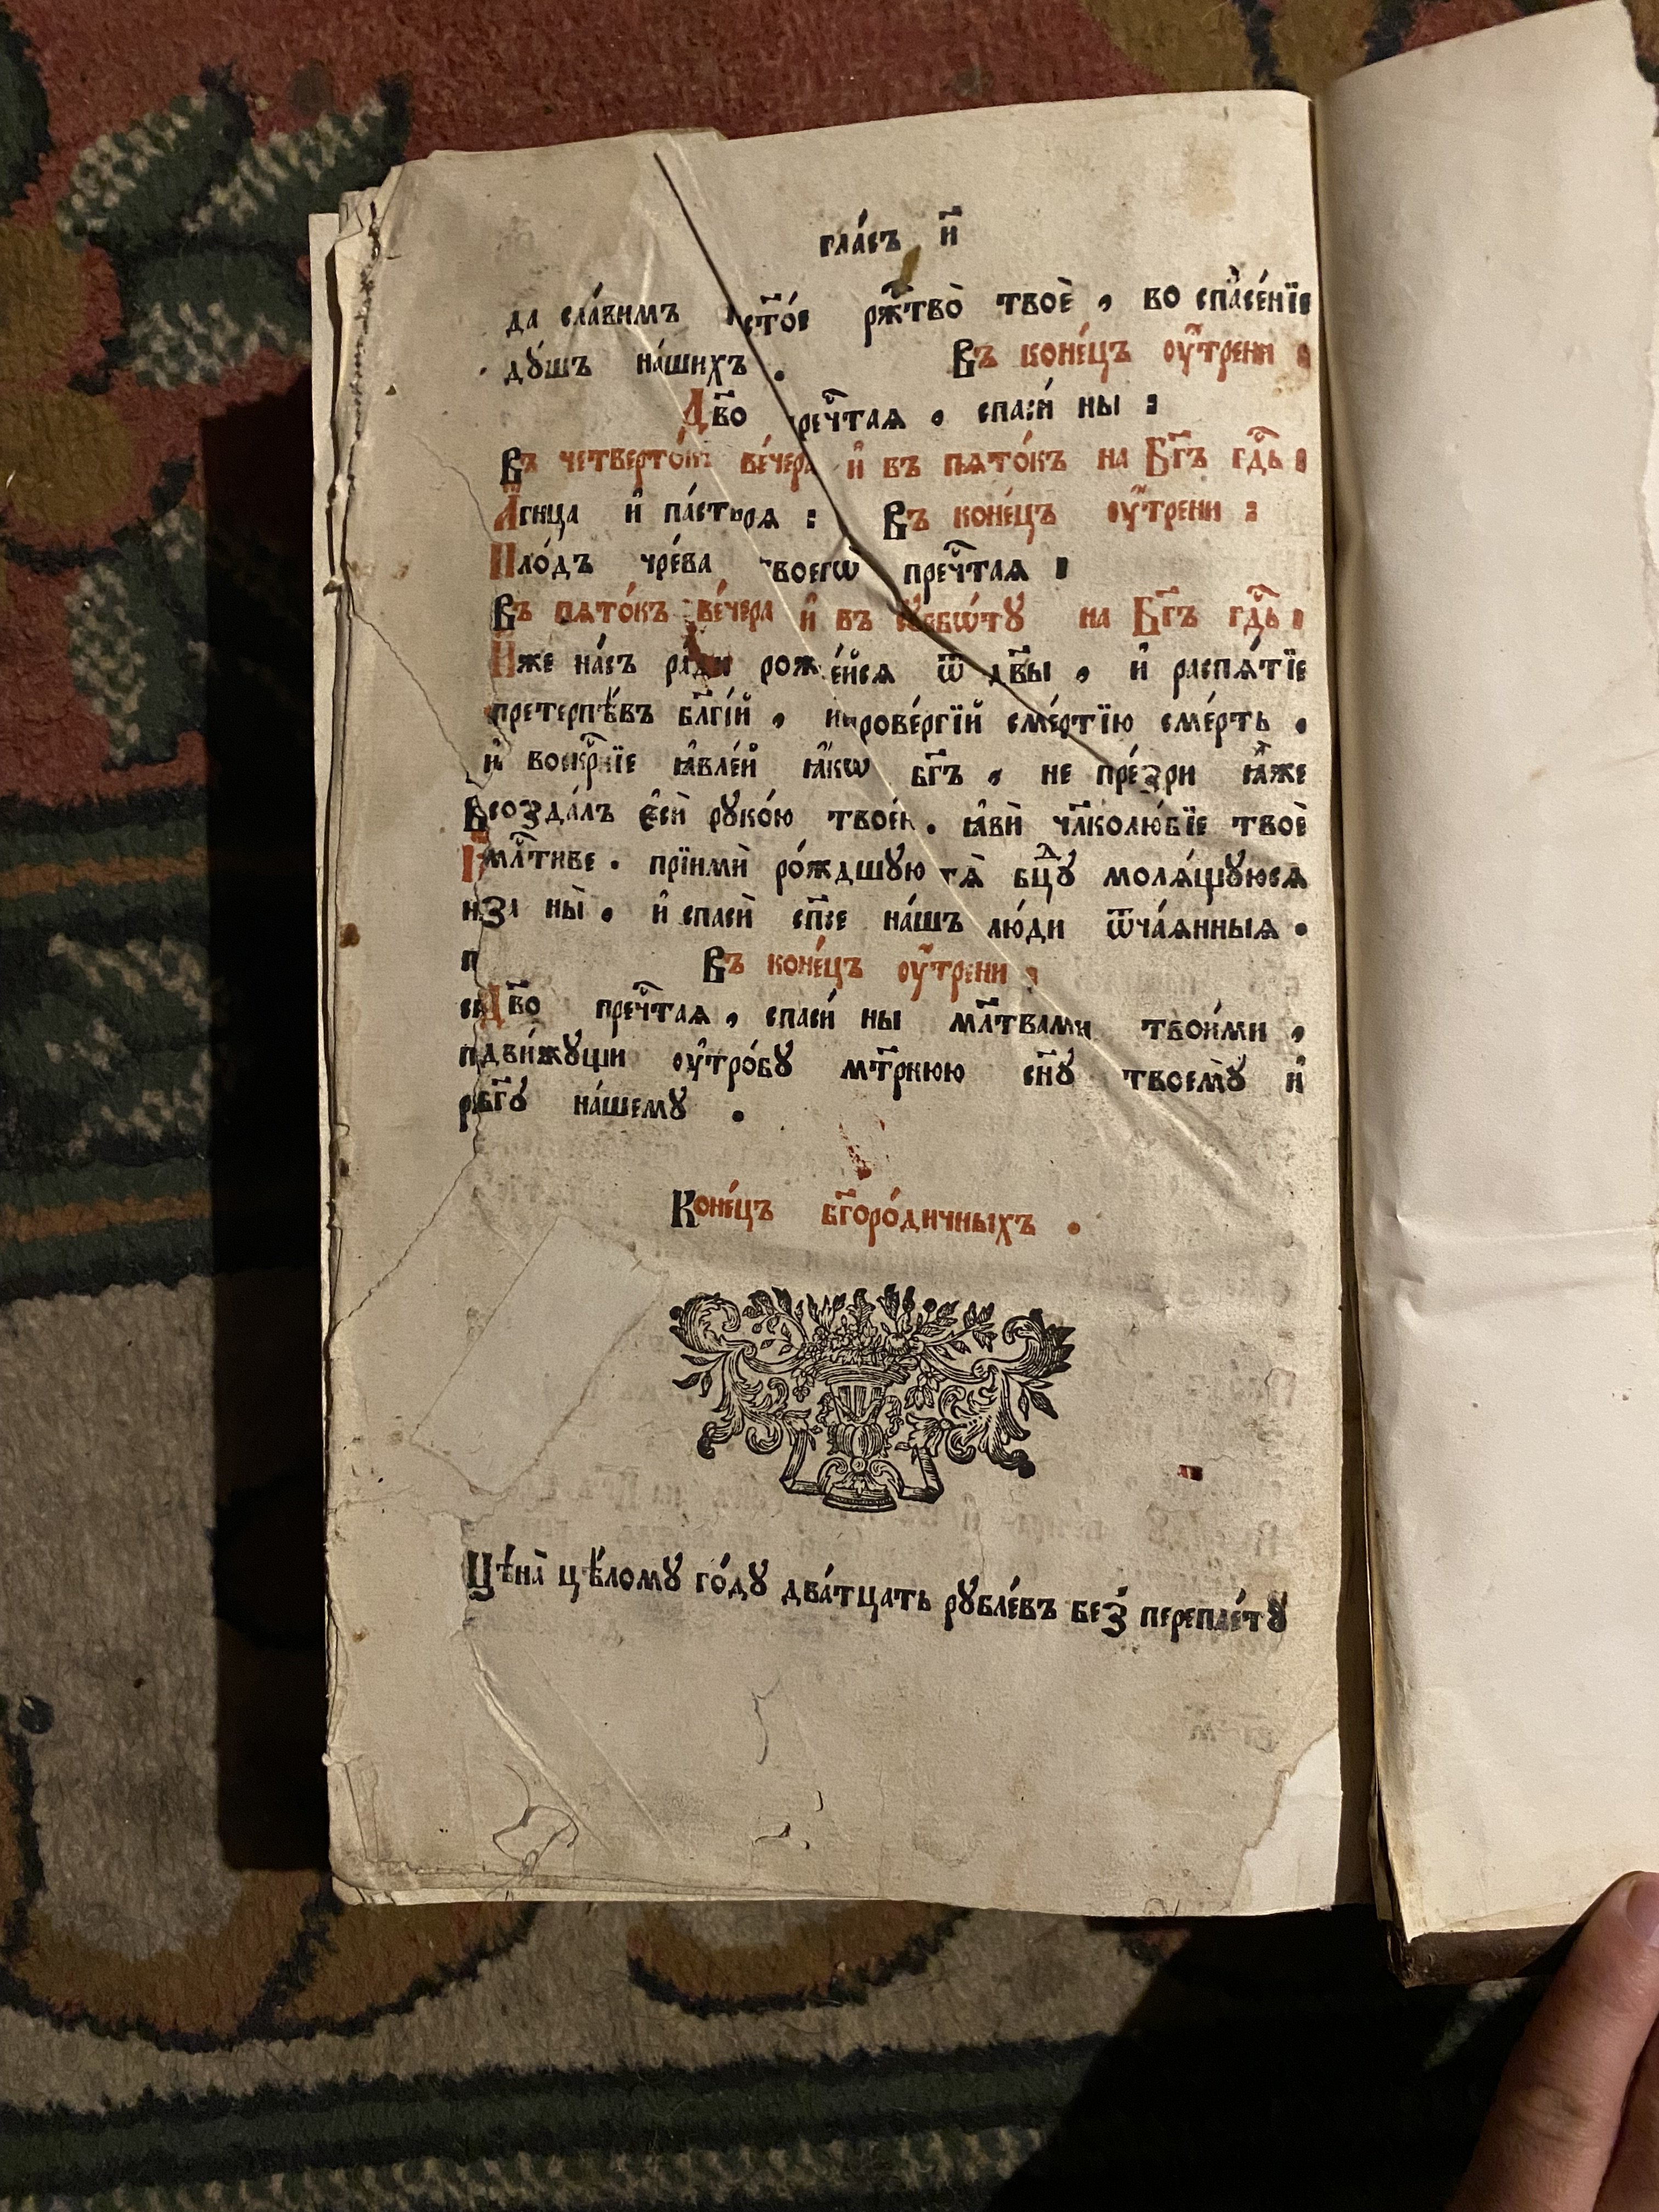 гла́съ и҃
да сла́вимъ ст҃о́е рж҃тво̀ твоѐ , во спⷭ҇се́нїе
дꙋ́шъ на́шихъ . Въ коне́цъ оу҆́трени :
Дв҃о пречⷭ҇тая , спасѝ ны :
Въ четверто́къ ве́чера и҆ въ пѧто́къ на Бг҃ъ гдⷭ҇ь :
А҆́гнца и҆ па́стырѧ : Въ коне́цъ оу҆́трени :
Пло́дъ чре́ва твоегѡ̀ пречⷭ҇таѧ :
Въ пѧто́къ ве́чера и҆ въ сꙋббѡ́тꙋ на Бг҃ъ гдⷭ҇ь :
И҆́же на́съ ра́ди рожде́йсѧ ѿ дв҃ы , и҆ распѧ́тїе
претерпѣ́въ бл҃гі́й , и҆спрове́ргїй сме́ртїю сме́рть .
и҆ воскрⷭ҇нїе ꙗ҆вле́й ꙗ҆́кѡ бг҃ъ , не пре́зри ꙗ҆̀же
созда́лъ є҆сѝ рꙋко́ю твое́ю . ꙗ҆вѝ чл҃колю́бїе твоѐ
млⷭ҇тиве . прїимѝ ро́ждшꙋю тѧ̀ бцⷣꙋ молѧ́щꙋюсѧ
за ны̀ . и҆ спасѝ сп҃се на́шъ лю́ди ѿча́ѧнныѧ .
Въ коне́цъ оу҆́трени :
Дв҃о пречⷭ҇тая , спасѝ ны мл҃твами твои́ми ,
дви́жꙋщи оу҆тро́бꙋ мт҃рнюю сн҃ꙋ твоемꙋ̀ и҆
бг҃ꙋ на́шемꙋ .
Коне́цъ бг҃оро́дичныхъ .
Цѣ́на̀ цѣ́ломꙋ го́дꙋ два́тцать рꙋбле́въ без̾ перепле́тꙋ